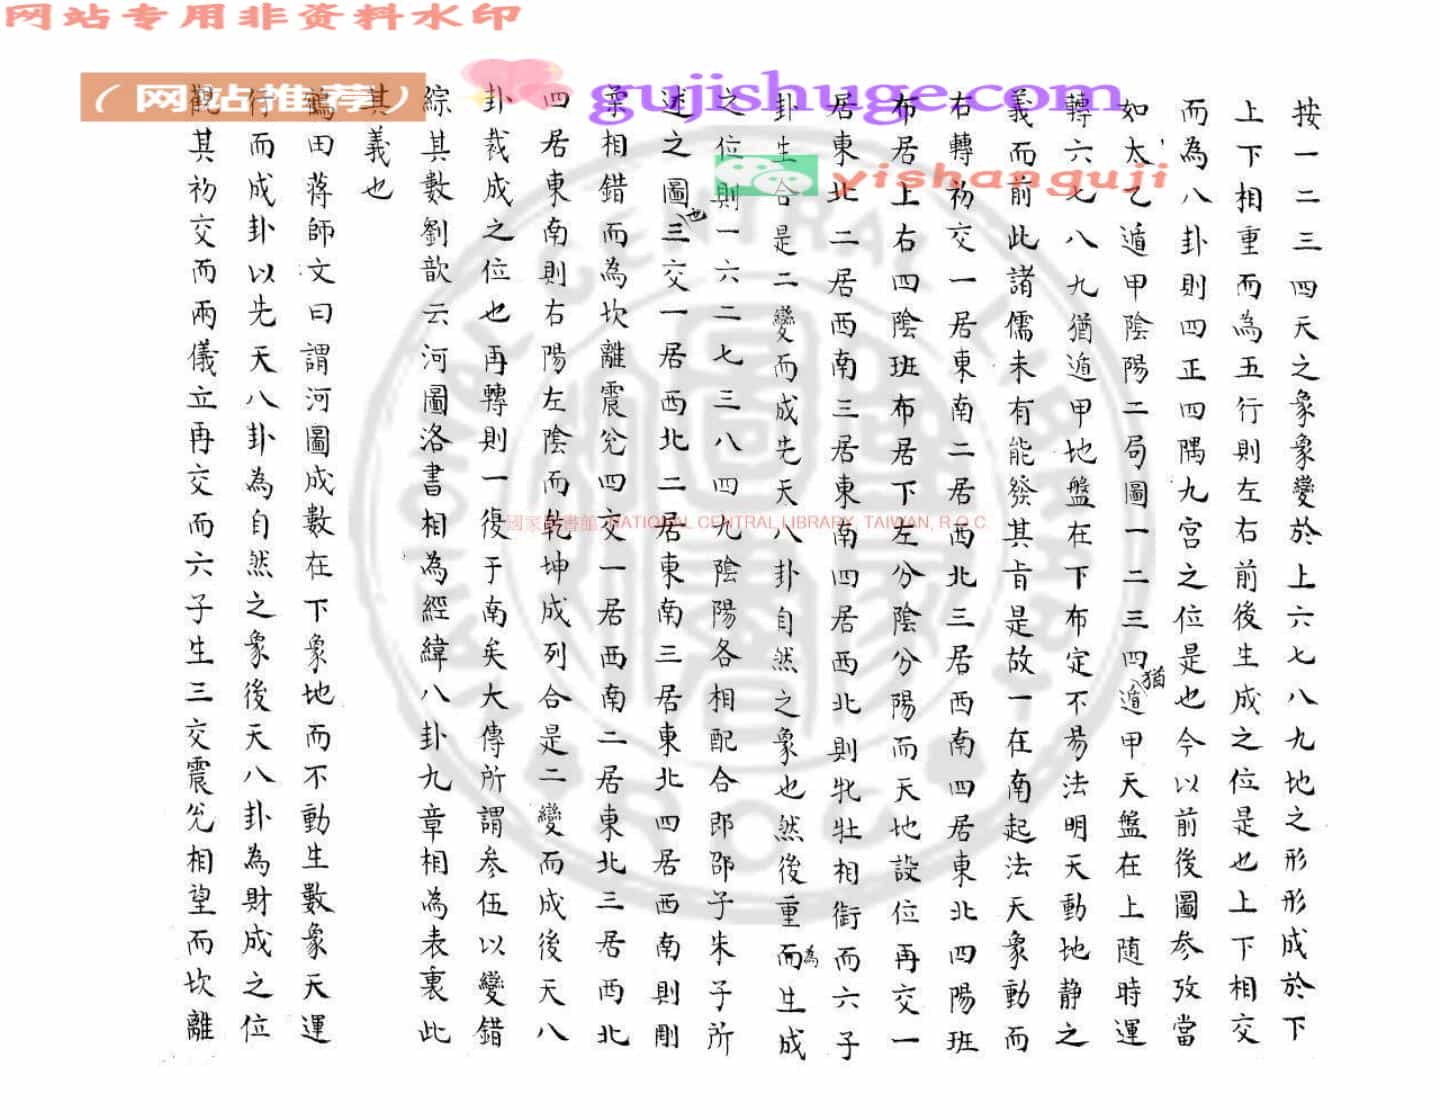 网站专用非资料水印
（网站推荐）
gujishuge.com
yishanguji
按一二三四天之象象變於上六七八九地之形形成於下
上下相重而為五行則左右前後生成之位是也上下相交
而為八卦則四正四隅九宮之位是也今以前後圖參攷當
如太乙遁甲陰陽二局圖一二三四猶遁甲天盤在上隨時運
轉六七八九猶遁甲地盤在下布定不易法明天動地静之
義而前此諸儒未有能發其旨是故一在南起法天象動而
右轉初交一居東南二居西北三居西南四居東北四陽班
布居上右四陰班布居下左分陰分陽而天地設位再交一
居東北二居西南三居東南四居西北則牝牡相銜而六子
卦生合是二變而成先天八卦自然之象也然後重而為生成
之位則一六二七三八四九陰陽各相配合即邵子朱子所
述之圖也三交一居西北二居東南三居東北四居西南則剛
柔相錯而為坎離震兌四交一居西南二居東北三居西北
四居東南則右陽左陰而乾坤成列合是二變而成後天八
卦裁成之位也再轉則一復于南矣大傳所謂參伍以變錯
綜其數劉歆云河圖洛書相為經緯八卦九章相為表裏此
其義也
鶴田蔣師文曰謂河圖成數在下象地而不動生數象天運
行而成卦以先天八卦為自然之象後天八卦為財成之位
觀其初交而兩儀立再交而六子生三交震兌相望而坎離
國家圖書館 NATIONAL CENTRAL LIBRARY, TAIWAN, R.O.C
NATIONAL CENTRAL LIBRARY
R.O.C